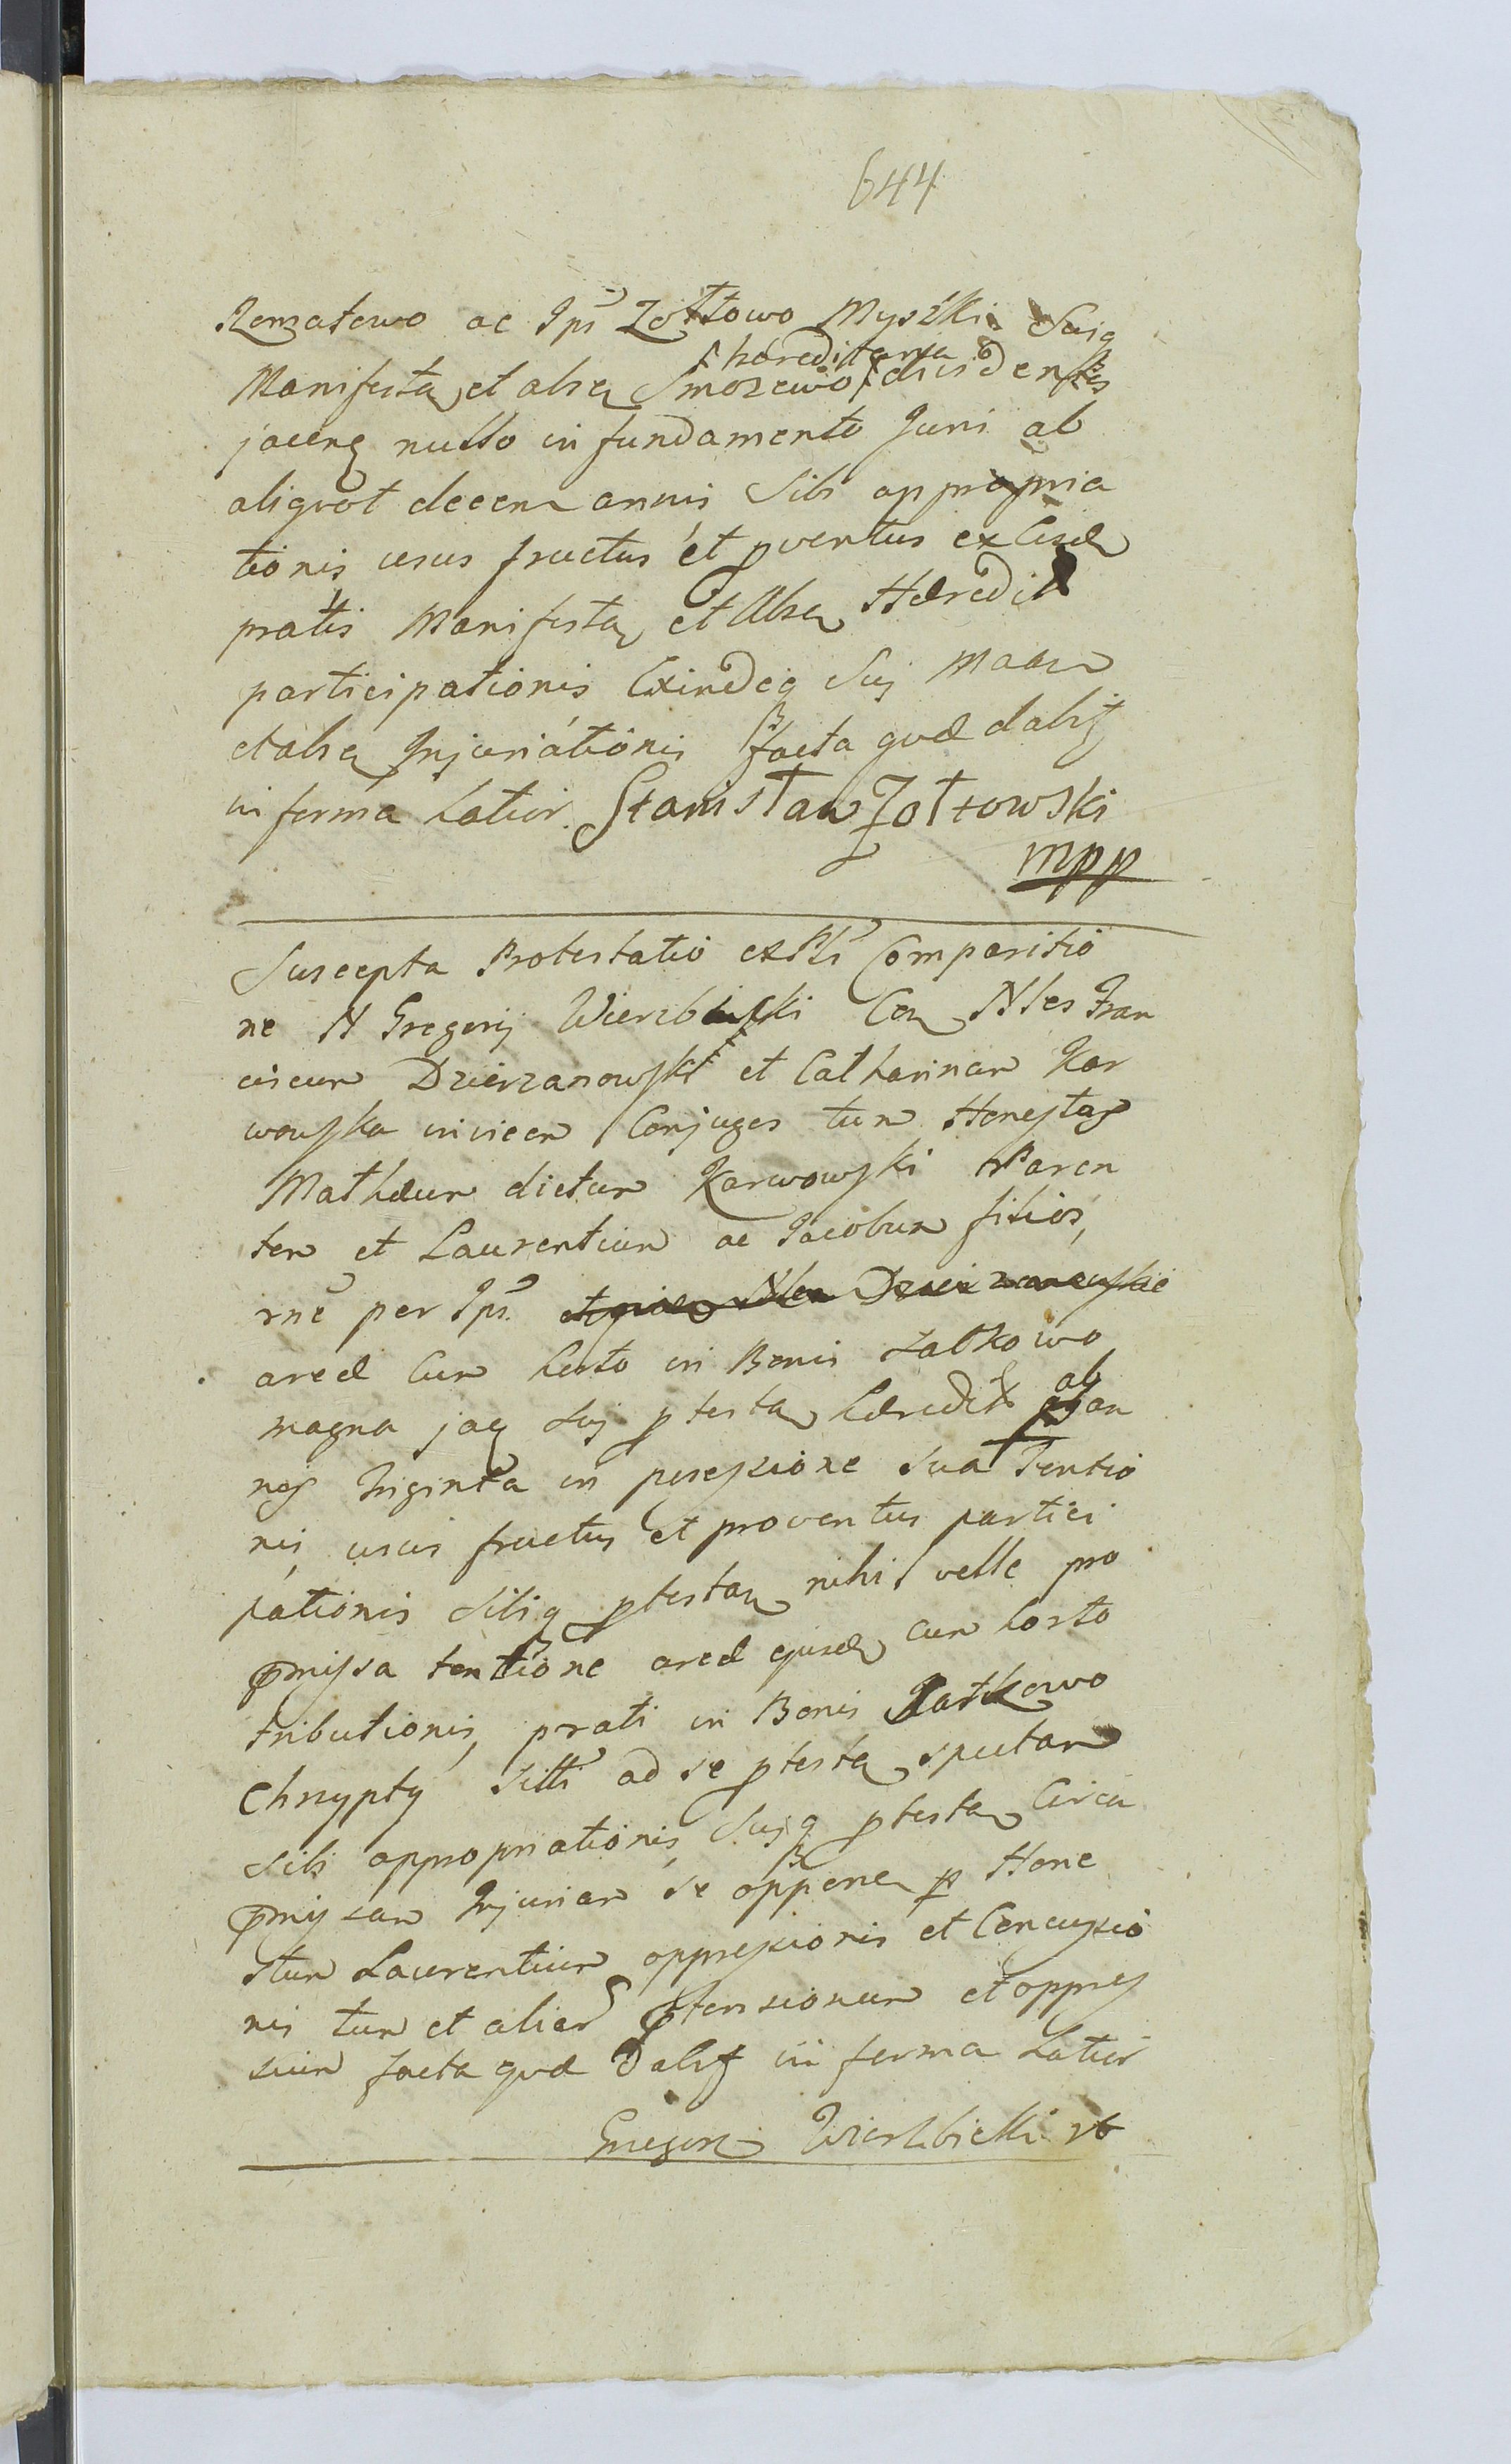 644
Remzatowo ac Ips Zołtowo Myszki Suiq
haereditaria
Manifesta et alsq Smorzewo dividentes
jacenq nullo in fundamento Juri ab
aliqvot decem annis Sibi appropria
tionis usus fructus et pventus ex eisd
pratis Manifesta et Alsq Hæredit
participationis Exindeq Suj
et alsq Injuriationis facta qvæ dabit
in forma Latior. Stanisław Zołtowski
mpp
Suscepta Protestatio ex Psli Comparitio
ne N Gregorij Wierzbicki Con Nles Fran
ciscum Dzierzanowski et Catharinam Kar
wowska invicem Conjuges tum Honestos
Mathæum dictum Karwowski Paren
tem et Laurentium ac Jacobum filios,
rne per Ips. Nlem Dzierzanowskie
areæ Cum horto in Bonis Łatkowo
magna jaq Suj ptesta hæredit ab an
nis triginta in possessione Sua Tentio
nis usus fructus et proventus partici
pationis Sibiq ptestan nihil velle pro
pmissa tentione areæ ejusd cum horto
tributionis, prati in Bonis Łatkowo
Chrzypty Siti ad se ptesta spectan
Sibi appropriationis Sujq ptesta Circa
pmissam Injuriam se oppone p Hone
stum Laurentium oppressionis et Concussio
nis tum et aliar ptensionum et oppres
sium facta qvæ dabit in forma Latior
Gregorz Wierzbicki